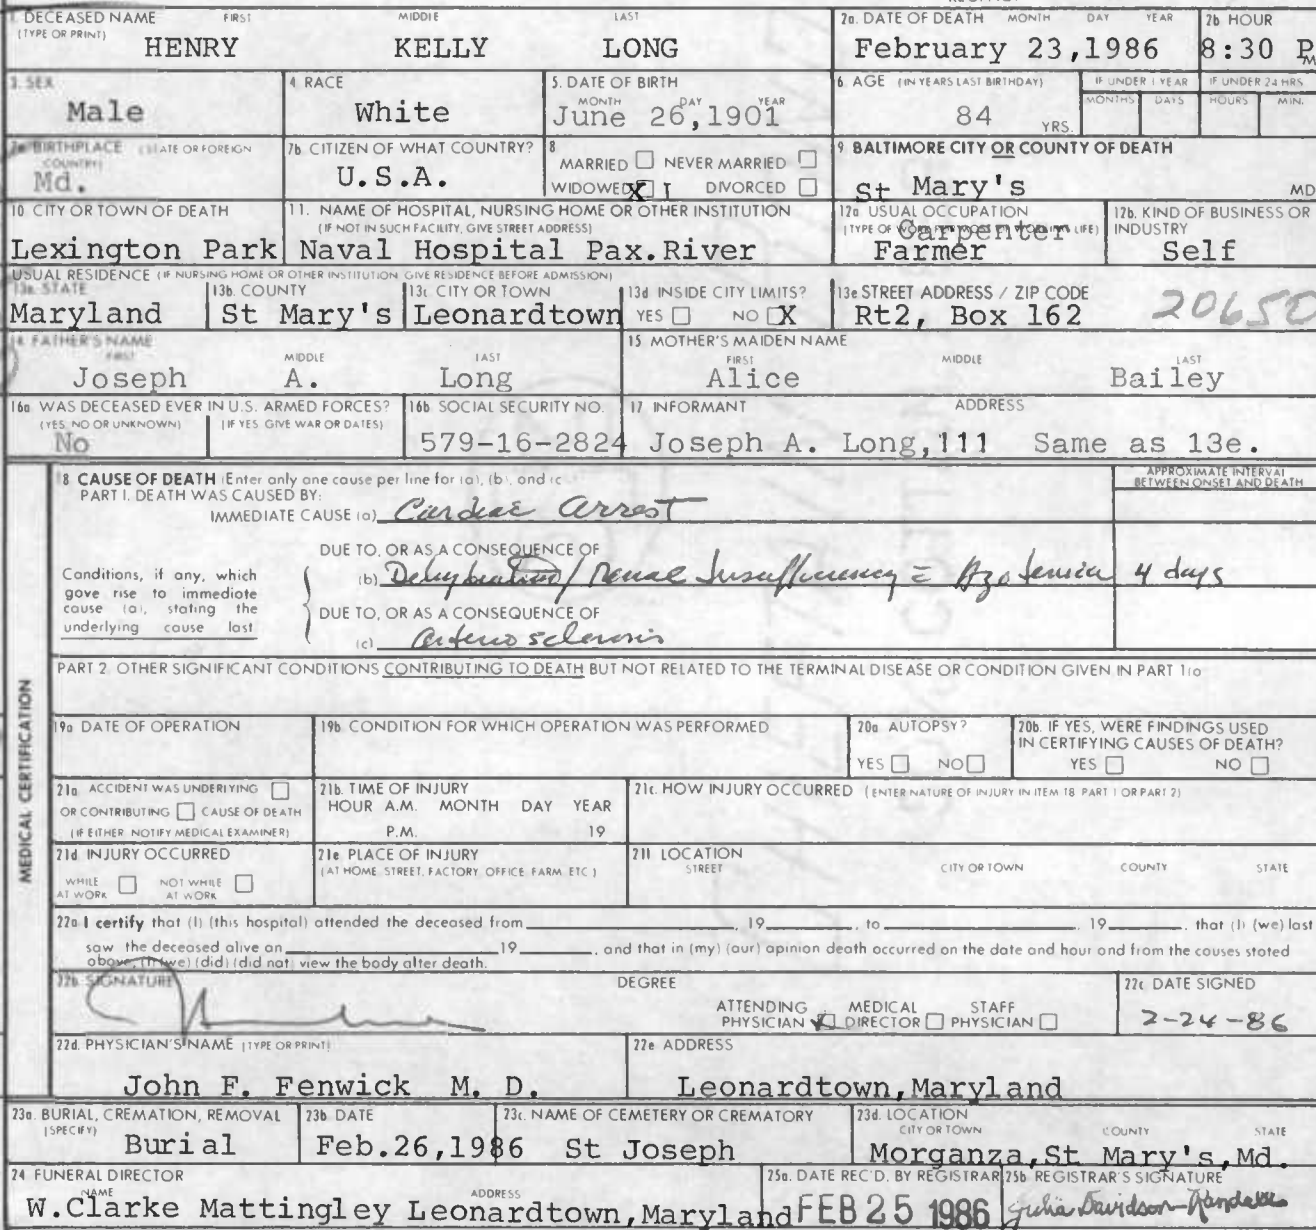 1. DECEASED NAME FIRST MIDDLE LAST
(TYPE OR PRINT)
HENRY KELLY LONG
2a. DATE OF DEATH MONTH DAY YEAR
February 23,1986
2b HOUR
8:30 P
M
3. SEX
Male
4 RACE
White
5. DATE OF BIRTH
MONTH DAY YEAR
June 26,1901
6 AGE (IN YEARS LAST BIRTHDAY)
84 YRS.
IF UNDER 1 YEAR
MONTHS DAYS
IF UNDER 24 HRS
HOURS MIN.
7a BIRTHPLACE (STATE OR FOREIGN
COUNTRY)
Md.
7b CITIZEN OF WHAT COUNTRY?
U.S.A.
8
MARRIED NEVER MARRIED
WIDOWED X DIVORCED
9 BALTIMORE CITY OR COUNTY OF DEATH
St Mary's MD
10 CITY OR TOWN OF DEATH
Lexington Park
11. NAME OF HOSPITAL, NURSING HOME OR OTHER INSTITUTION
(IF NOT IN SUCH FACILITY, GIVE STREET ADDRESS)
Naval Hospital Pax.River
12a USUAL OCCUPATION
(TYPE OF WORK FOR MOST OF WORKING LIFE)
Carpenter
Farmer
12b. KIND OF BUSINESS OR
INDUSTRY
Self
USUAL RESIDENCE (IF NURSING HOME OR OTHER INSTITUTION GIVE RESIDENCE BEFORE ADMISSION)
13a. STATE
Maryland
13b. COUNTY
St Mary's
13c CITY OR TOWN
Leonardtown
13d INSIDE CITY LIMITS?
YES NO X
13e STREET ADDRESS / ZIP CODE
Rt2, Box 162 20650
14 FATHER'S NAME
FIRST MIDDLE LAST
Joseph A. Long
15 MOTHER'S MAIDEN NAME
FIRST MIDDLE LAST
Alice Bailey
16a WAS DECEASED EVER IN U.S. ARMED FORCES?
(YES, NO OR UNKNOWN) (IF YES, GIVE WAR OR DATES)
No
16b SOCIAL SECURITY NO.
579-16-2824
17 INFORMANT ADDRESS
Joseph A. Long,111 Same as 13e.
MEDICAL CERTIFICATION
18 CAUSE OF DEATH (Enter only one cause per line for (a), (b), and (c
PART I. DEATH WAS CAUSED BY:
APPROXIMATE INTERVAL
BETWEEN ONSET AND DEATH
IMMEDIATE CAUSE (a) Cardiac Arrest
DUE TO, OR AS A CONSEQUENCE OF
Conditions, if any, which
gove rise to immediate
cause (a), stating the
underlying cause last
(b) Dehydration / Renal Insufficiency = Azotemia 4 days
DUE TO, OR AS A CONSEQUENCE OF
(c) Arteriosclerosis
PART 2 OTHER SIGNIFICANT CONDITIONS CONTRIBUTING TO DEATH BUT NOT RELATED TO THE TERMINAL DISEASE OR CONDITION GIVEN IN PART 1(a
19a DATE OF OPERATION
19b CONDITION FOR WHICH OPERATION WAS PERFORMED
20a AUTOPSY?
YES NO
20b. IF YES, WERE FINDINGS USED
IN CERTIFYING CAUSES OF DEATH?
YES NO
21a ACCIDENT WAS UNDERLYING
OR CONTRIBUTING CAUSE OF DEATH
(IF EITHER NOTIFY MEDICAL EXAMINER)
21b. TIME OF INJURY
HOUR A.M. MONTH DAY YEAR
P.M. 19
21c. HOW INJURY OCCURRED (ENTER NATURE OF INJURY IN ITEM 18 PART 1 OR PART 2)
21d INJURY OCCURRED
WHILE AT WORK NOT WHILE AT WORK
21e PLACE OF INJURY
(AT HOME, STREET, FACTORY, OFFICE, FARM, ETC.)
21f LOCATION
STREET CITY OR TOWN COUNTY STATE
22a I certify that (I) (this hospital) attended the deceased from , 19 , to 19 , that (I) (we) last
saw the deceased alive on 19 , and that in (my) (our) opinion death occurred on the date and hour and from the causes stated
above, (I) (we) (did) (did not) view the body after death.
22b SIGNATURE
DEGREE
ATTENDING PHYSICIAN MEDICAL DIRECTOR STAFF PHYSICIAN
22c DATE SIGNED
2-24-86
22d. PHYSICIAN'S NAME (TYPE OR PRINT)
John F. Fenwick M. D.
22e ADDRESS
Leonardtown,Maryland
23a. BURIAL, CREMATION, REMOVAL
(SPECIFY)
Burial
23b. DATE
Feb.26,1986
23c. NAME OF CEMETERY OR CREMATORY
St Joseph
23d. LOCATION
CITY OR TOWN COUNTY STATE
Morganza,St Mary's,Md.
24 FUNERAL DIRECTOR
NAME ADDRESS
W.Clarke Mattingley Leonardtown,Maryland
25a. DATE REC'D. BY REGISTRAR
FEB 25 1986
25b REGISTRAR'S SIGNATURE
Julia Davidson-Randall